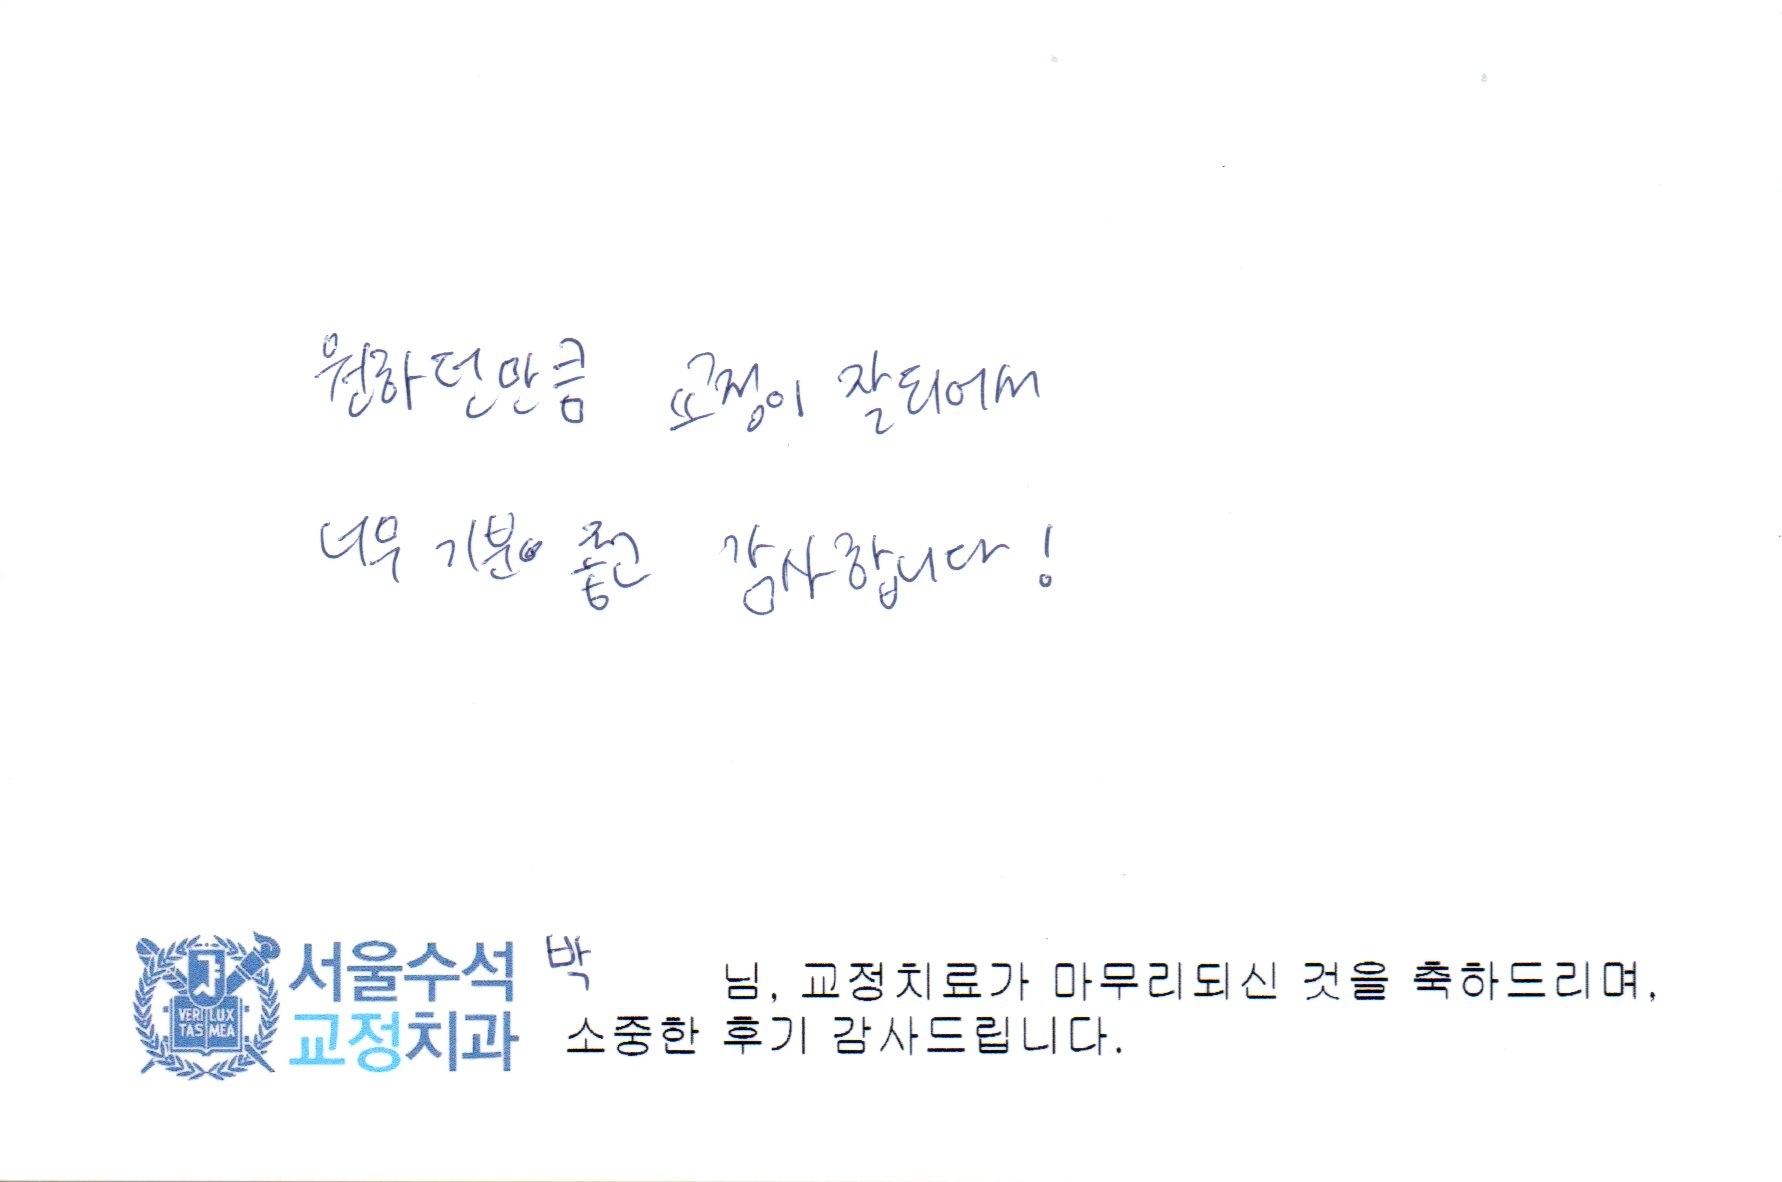 원하던만큼 교정이 잘되어서
너무 기분이 좋고 감사합니다!
서울수석
교정치과
VERI LUX
TAS MEA
박 님, 교정치료가 마무리되신 것을 축하드리며,
소중한 후기 감사드립니다.